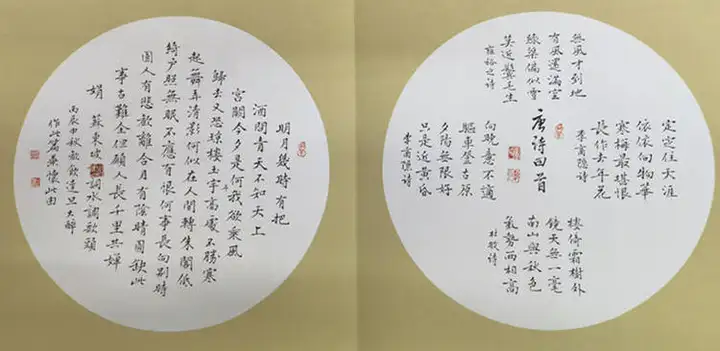 明月幾時有把
酒問青天不知天上
宮闕今夕是何年我欲乘風
歸去又恐瓊樓玉宇高處不勝寒
起舞弄清影何似在人間轉朱閣低
綺戶照無眠不應有恨何事長向別時
圓人有悲歡離合月有陰晴圓缺此
事古難全但願人長千里共嬋
娟 蘇東坡詞水調歌頭
丙辰中秋歡飲達旦大醉
作此篇兼懷此由
無風才到地
有風還滿空
緣渠偏似雪
莫近鬢毛生
雍裕之詩
定定住天涯
依依向物華
寒梅最堪恨
長作去年花
李商隱詩
唐詩四首
向晚意不適
驅車登古原
夕陽無限好
只是近黃昏
李商隱詩
樓倚霜樹外
鏡天無一毫
南山與秋色
氣勢兩相高
杜牧詩